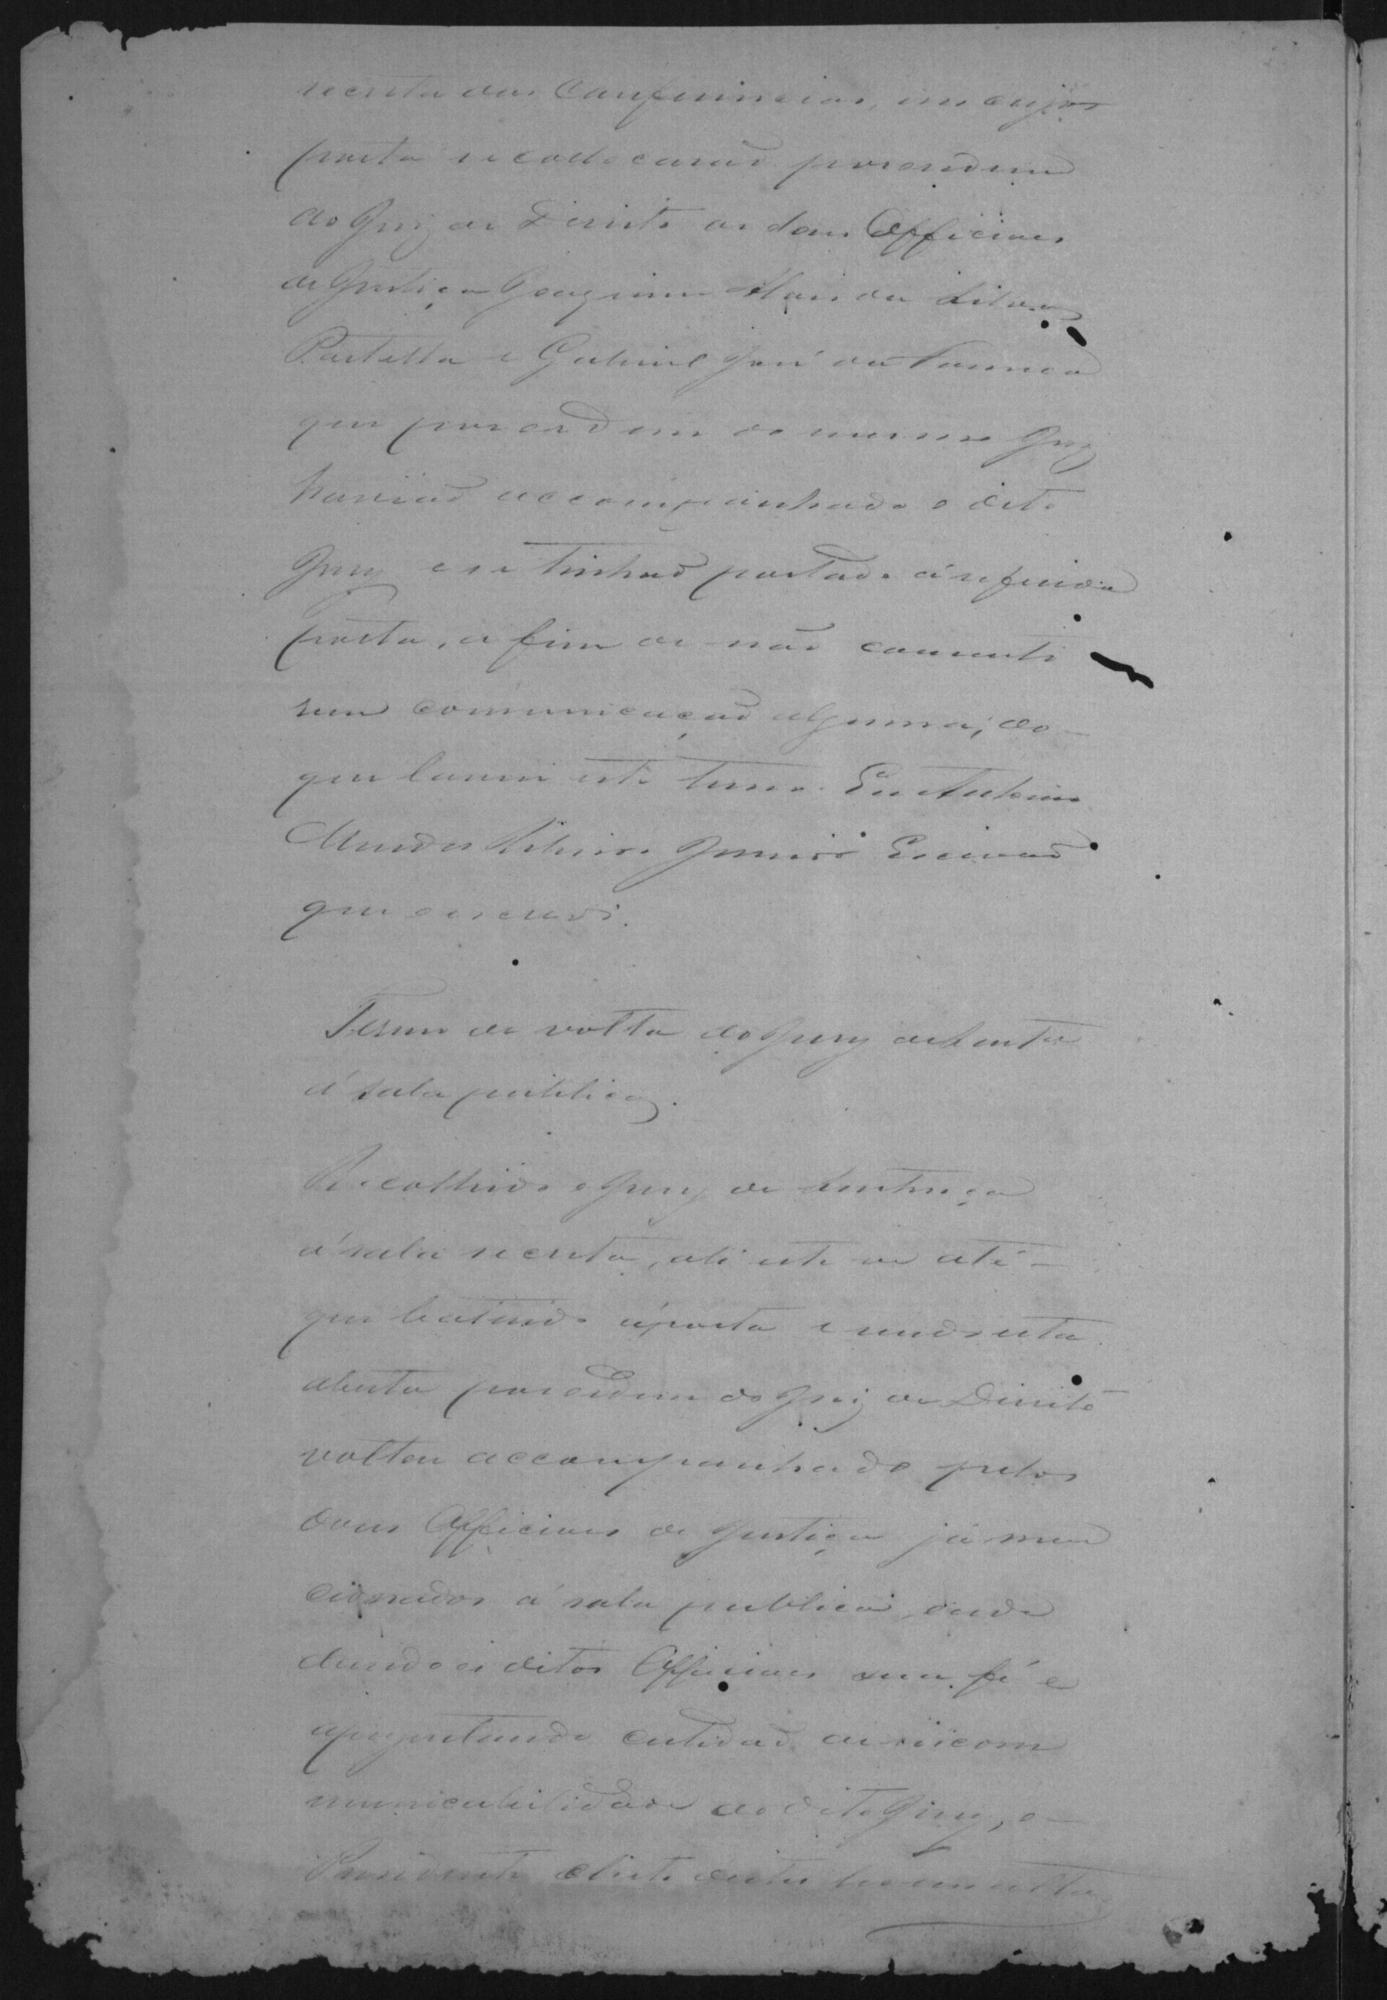 secreta das Conferencias, em cujas
porta se collocarão por ordem
do Juiz de Direito os dous Officiaes
de Justiça Joaquim da Silva
Portella e Gabriel José da
que por ordem do mesmo Juiz
havião accompanhado o dito
Jury e se tinhão postado á referida
porta, a fim de não consenti
rem communicação alguma; do
que lavrei este termo. Eu Antonio
Mendes Ribeiro Junior Escrivão
que o escrevi.
Termo de volta do Jury de Sentça
á sala publica.
Recolhido o Jury de Sentença
á sala secreta, ali esteve até
que batendo á porta e sendo esta
aberta por ordem do Juiz de Direito
voltou accompanhado pelos
dous Officiaes de Justiça já men
cionados á sala publica, onde
dando os ditos Officiaes sua fé e
apresentando certidão de incom
municabilidade do dito Jury, o
Presidente deste leu em alta